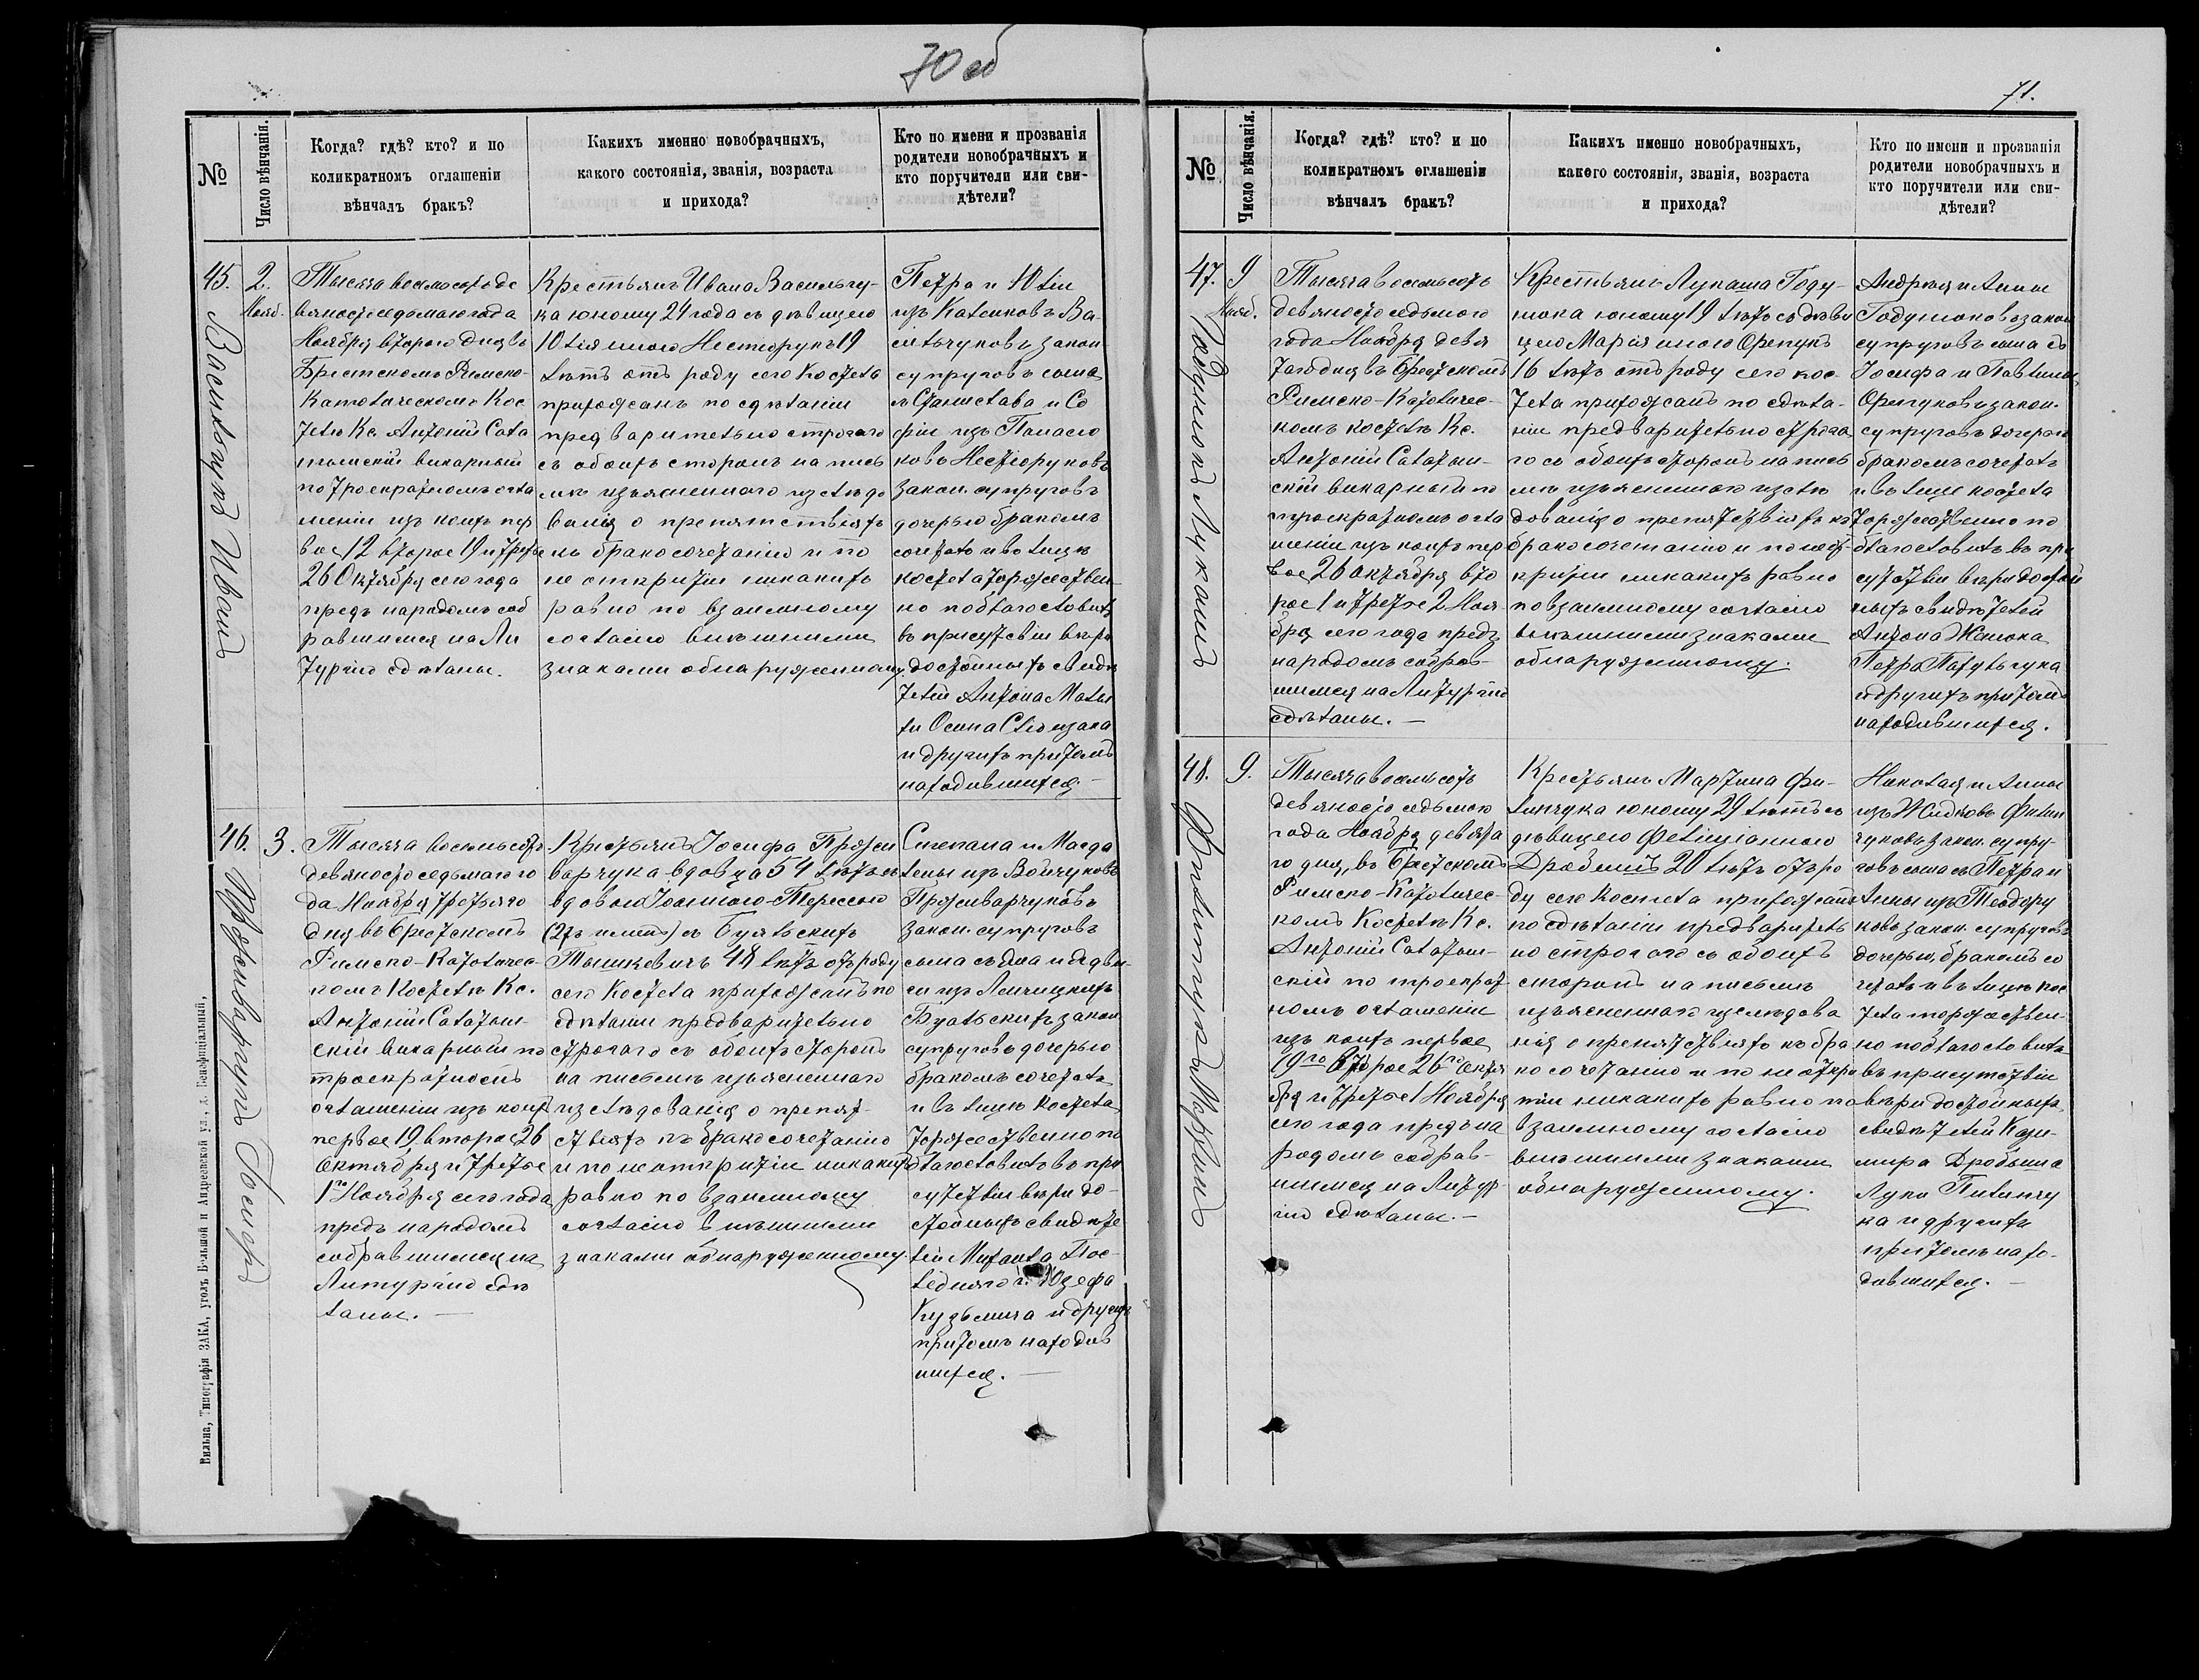 70 об
№
Число вѣнчанія.
Когда? гдѣ? кто? и по
коликратномъ оглашеніи
вѣнчалъ бракъ?
Какихъ именно новобрачныхъ,
какого состоянія, званія, возраста
и прихода?
Кто по имени и прозванія
родители новобрачныхъ и
кто поручители или сви-
дѣтели?
45.
2.
Нояб.
Васильчукъ Иванъ
Тысяча восмьсотъ де
вяностоседьмаго года
Ноября второго дня въ
Брестскомъ Римско-
Католическомъ Кос
телѣ Кс. Антоній
викарный
по троекратномъ огла
шеніи изъ коихъ пер
вое 12 второе 19 и третье
26 Октября сего года
предъ народомъ соб
равшимся на Ли
тургію сдѣланы.
Крестьянъ Ивана Васильчу-
ка юношу 24 года съ дѣвицею
Юліянною Несторукъ 19
лѣтъ отъ роду сего Костела
прихожанъ по сдѣланіи
предварительно строгаго
съ обоихъ сторонъ на пись
мѣ изъясненнаго изслѣдо
ванія о препятствіяхъ
къ бракосочетанію и по
не открытіи никакихъ
равно по взаимному
согласію внѣшними
знаками обнаруженному.
Петра и Юліи
изъ Ва-
сильчуковъ закон.
супруговъ сына
съ Станислава и Со
фіи изъ Панасю
ковъ Несторуковъ
закон. супруговъ
дочерью бракомъ
сочеталъ и въ лицѣ
костела торжествен-
но поблагословилъ
въ присутствіи вѣро
достойныхъ свидѣ
телей Антона
Осипа
и другихъ притомъ
находившихся
46.
3.
Прживарчукъ Іосифъ
Тысяча восемьсотъ
девяностоседьмаго го
да Ноября третьяго
дня въ Брестскомъ
Римско-Католичес-
комъ Костелѣ Кс.
Антоній
викарный по
троекратномъ
оглашеніи изъ коихъ
первое 19 второе 26
Октября и третье
1го Ноября сего года
предъ народомъ
собравшимся на
Литургію сдѣ
ланы. —
Крестьянъ Іосифа Пржи
варчука вдовца 54 лѣтъ съ
вдовою Іоанною-Терессою
(2хъ именъ) съ Буяльскихъ
Тышкевичъ 48 лѣтъ отъ роду
сего Костела прихожанъ по
сдѣланіи предварительно
строгаго съ обоихъ сторонъ
на письмѣ изъясненнаго
изслѣдованія о препят-
ствіяхъ къ бракосочетанію
и по не открытіи никакихъ
равно по взаимному
согласію внѣшними
знаками обнаруженному.
Степана и Магда
лены изъ Войчуковъ
Прживарчуковъ
закон. супруговъ
сына съ и
изъ
Буяльскихъ закон
супруговъ дочерью
бракомъ сочеталъ
и въ лицѣ костела
торжественно по
благословилъ въ при
сутствіи вѣро до-
стойныхъ свидѣте
лей Михаила
и Юзефа
Кузьмича и другихъ
притомъ находив
шихся. —
Вильна, Типографія ЗАКА, уголъ Большой и Андреевской ул., д. Бенефиціальный,
71.
№
Число вѣнчанія.
Когда? гдѣ? кто? и по
коликратномъ оглашеніи
вѣнчалъ бракъ?
Какихъ именно новобрачныхъ,
какого состоянія, званія, возраста
и прихода?
Кто по имени и прозванія
родители новобрачныхъ и
кто поручители или сви-
дѣтели?
47.
9
Нояб.
Годунокъ Лукашъ
Тысяча восемьсотъ
девяностоседьмого
года Ноября девя
таго дня въ Брестскомъ
Римско-Католичес-
комъ костелѣ Кс.
Антоній
викарный по
троекратномъ огла
шеніи изъ коихъ пер
вое 26 октября вто
рое 1 и третье 2 Ноя-
бря сего года предъ
народомъ собрав-
шимся на Литургію
сдѣланы. —
Крестьянъ Лукаша Году-
нока юношу 19 лѣтъ съ дѣви
цею Маріянною Орепукъ
16 лѣтъ отъ роду сего кос-
тела прихожанъ по сдѣла-
ніи предварительно строга
го съ обоихъ сторонъ на пись
мѣ изъясненнаго изслѣ
дованія о препятствіяхъ къ
бракосочетанію и по неот-
крытіи никакихъ равно
по взаимному согласію
внѣшними знаками
обнаруженному.
Андрея и Анны
Годуноковъ закон
супруговъ сына съ
Іосифа и Павлины
Орепуковъ закон.
супруговъ дочерью
бракомъ сочеталъ
и въ лице костела
торжественно по
благословилъ въ при
сутствіи вѣри достой
ныхъ свидѣтелей
Антона Жанюка
Петра
и другихъ притомъ
находившихся.
48.
9.
Филипчукъ Мартинъ
Тысяча восемьсотъ
девяносто седьмого
года Ноября девята
го дня, въ Брестскомъ
Римско-Католичес-
комъ Костелѣ Кс.
Антоній
по троекрат-
номъ оглашеніи
изъ коихъ первое
19го второе 26го Октя
бря и третье 1 Ноября
сего года предъ на
родомъ собрав-
шимся на Литур-
гію сдѣланы. —
Крестьянъ Мартина Фи-
липчука юношу 29 лѣтъ съ
дѣвицею Фелиціянною
Дробышъ 20 лѣтъ отъ ро
ду сего Костела прихожанъ
по сдѣланіи предваритель
но строгаго съ обоихъ
сторонъ на письмѣ
изъясненнаго изслѣдова
нія о препятствіяхъ къ бра
косочетанію и по не откры
тіи никакихъ равно по
взаимному согласію
внѣшними знаками
обнаруженному.
Николая и Анны
изъ Филип
чуковъ закон. супру-
говъ сына съ Петра и
Анны изъ Теодору
ковъ закон. супруговъ
дочерью, бракомъ со
четалъ и въ лицѣ кос
тела торжествен-
но поблагословилъ
въ присутствіи
вѣри достойныхъ
свидѣтелей Кази-
мира Дробыша
Луки Пилипчу
ка и другихъ
притомъ нахо-
дившихся. —